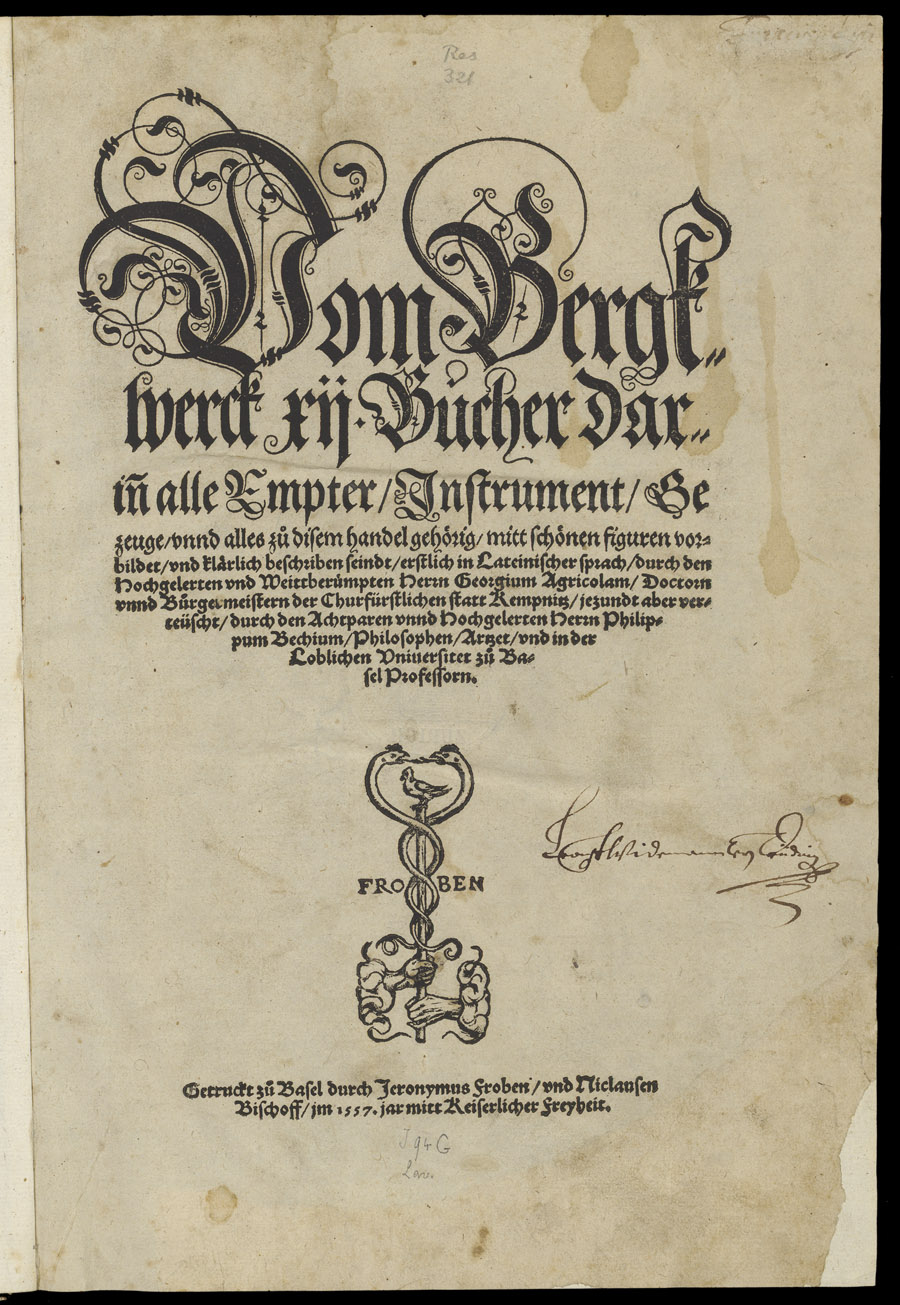 Res
321
Vom Bergk⸗
werck xij. Bücher dar⸗
iñ alle Empter/ Instrument/ Ge
zeuge/ vnnd alles zů disem handel gehörig/ mitt schönen figuren vor⸗
bildet/ vnd klärlich beschriben seindt/ erstlich in Lateinischer sprach/ durch den
Hochgelerten vnd Weittberümpten Herrn Georgium Agricolam/ Doctorn
vnnd Bürgermeistern der Churfürstlichen statt Kempnitz/ jezundt aber ver⸗
teüscht/ durch den Achtparen vnnd Hochgelerten Herrn Philip⸗
pum Bechium/ Philosophen/ Artzet/ vnd in der
Loblichen Vniuersitet zů Ba⸗
sel Professorn.
FRO BEN
Getruckt zů Basel durch Jeronymus Froben/ vnd Niclausen
Bischoff/ im 1557. jar mitt Keiserlicher Freyheit.
J 94 G